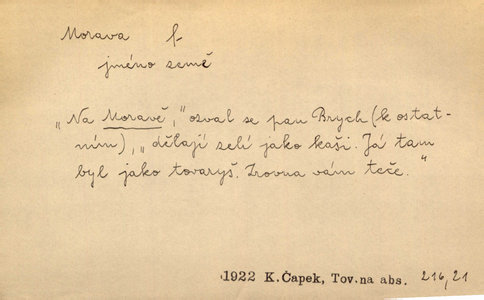 Morava f.
jméno země
„Na Moravě,“ ozval se pan Brych (k ostat-
ním), „dělají zelí jako kaši. Já tam
byl jako tovaryš. Zrovna vám teče.“
1922 K.Čapek, Tov.na abs. 216,21